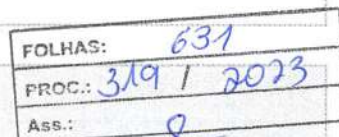 FOLHAS: 631
PROC.: 319 / 2023
Ass.: